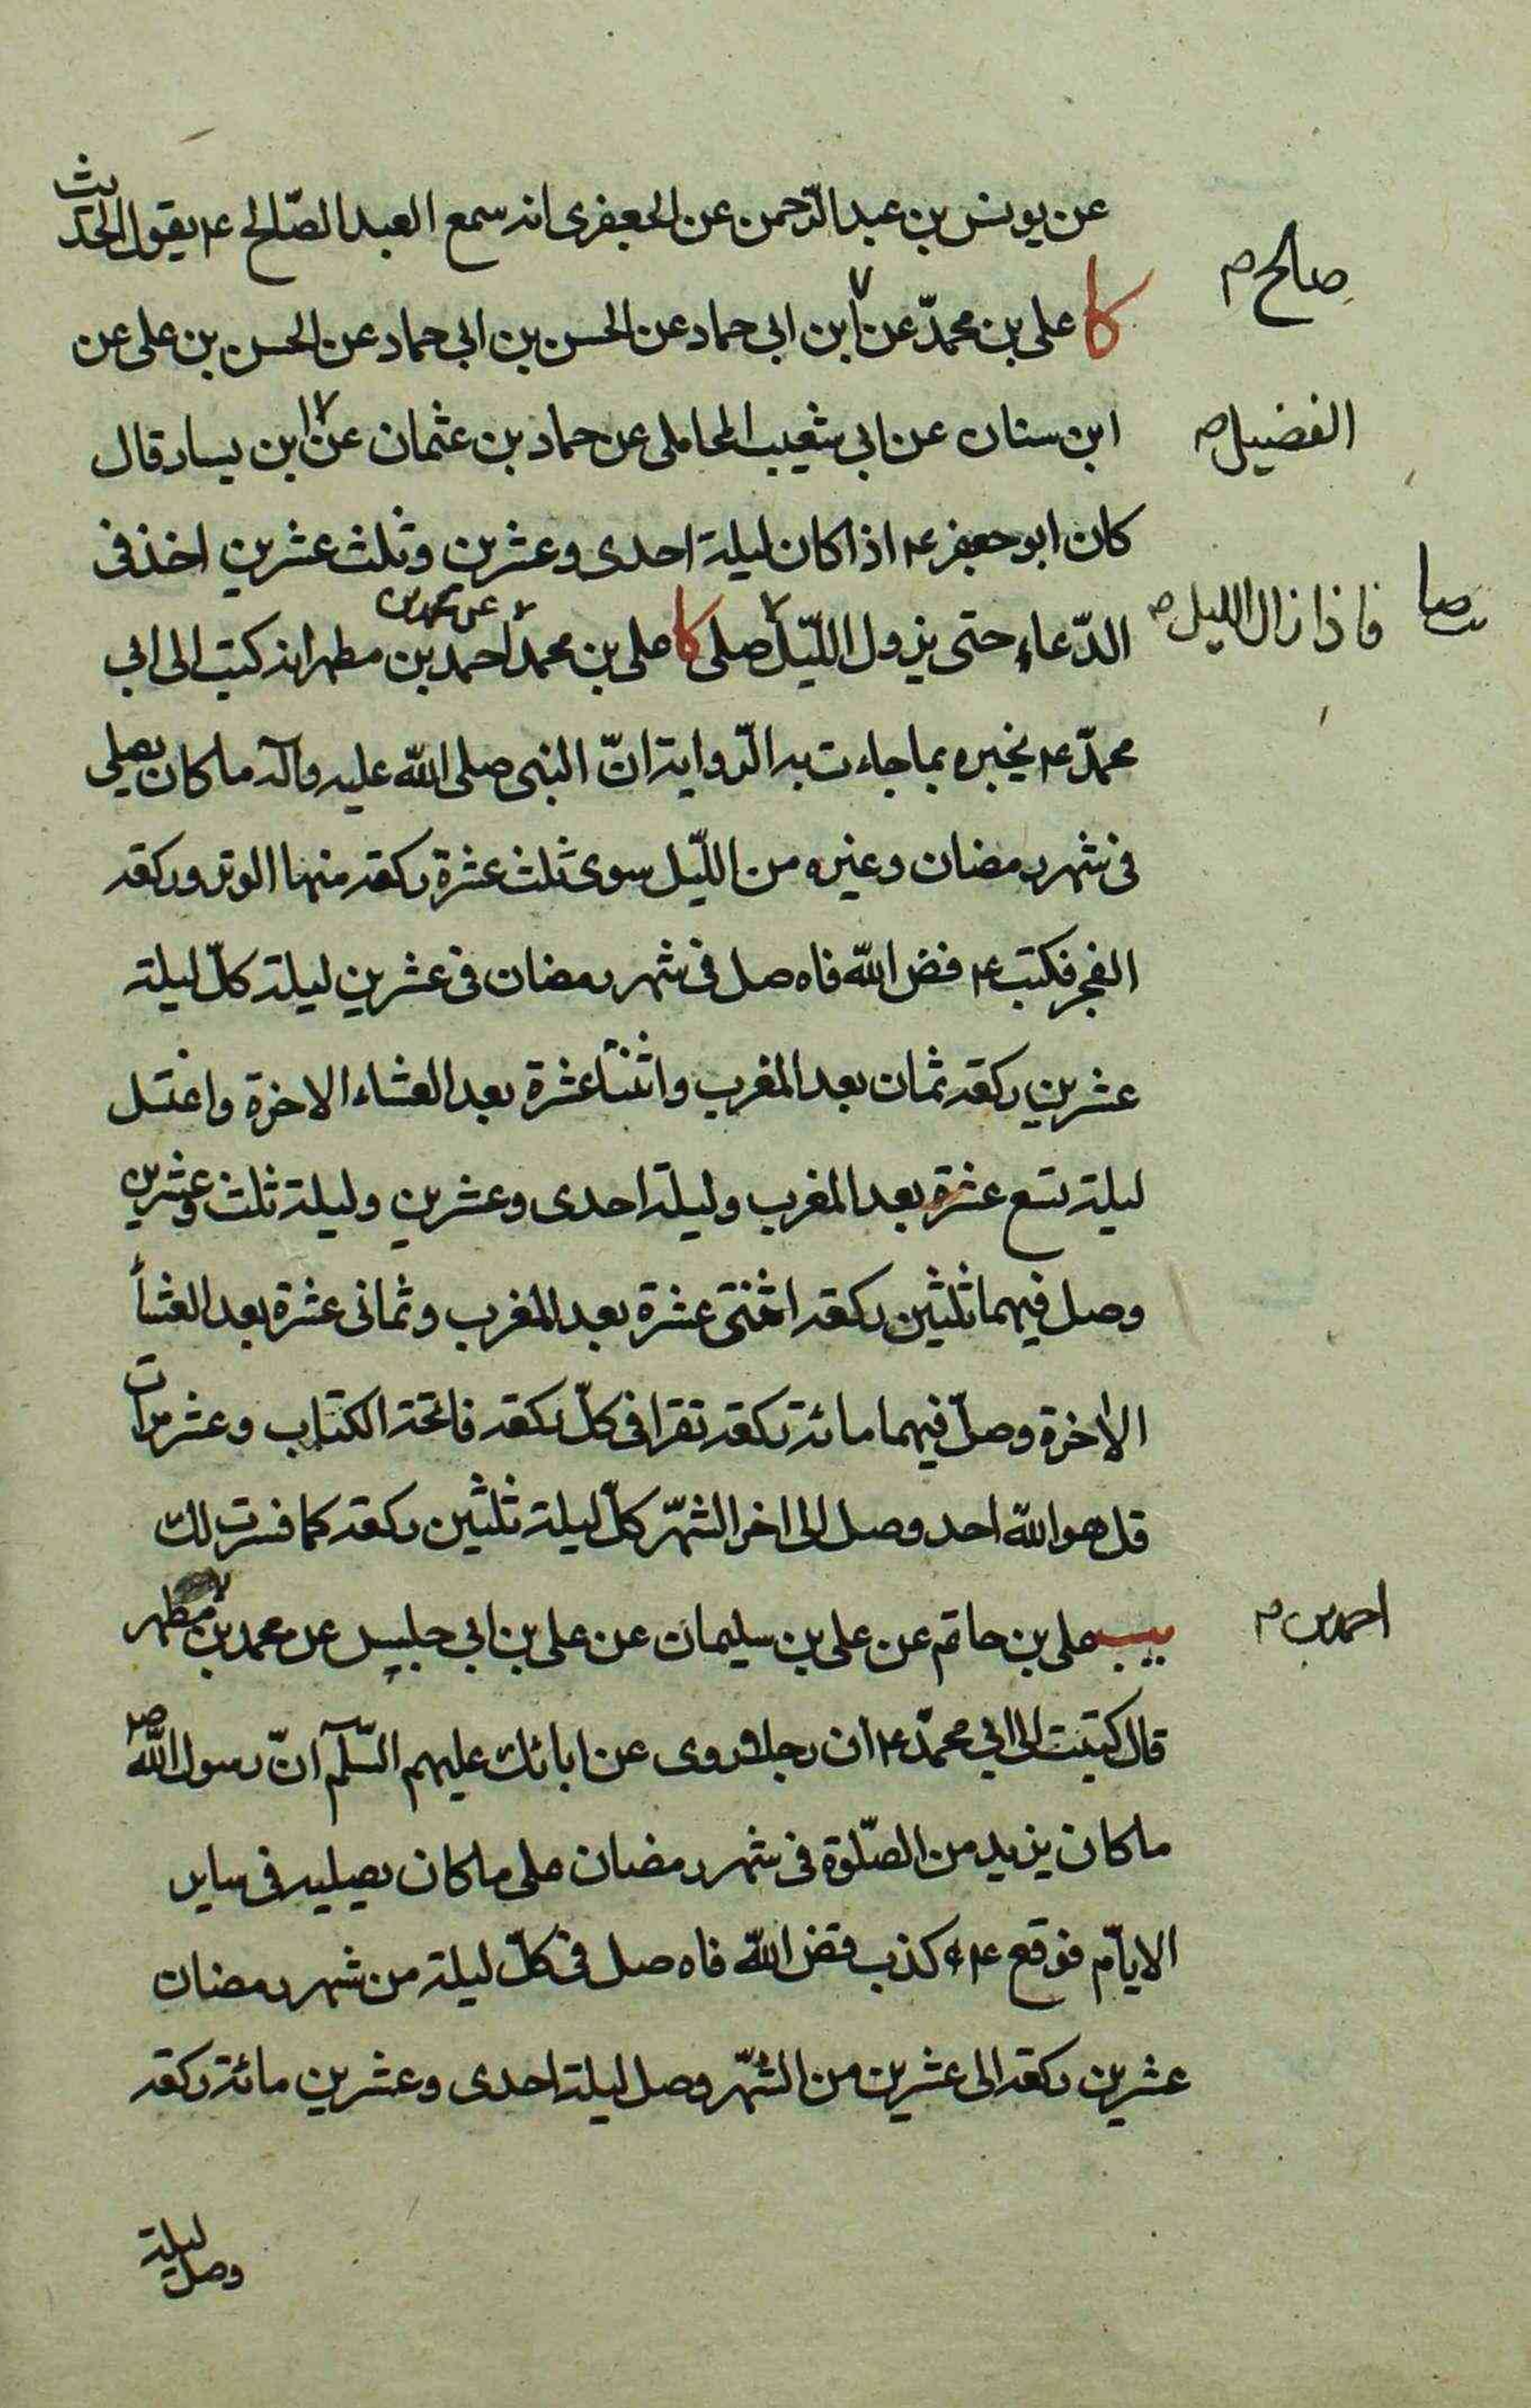 عن يونس بن عبد الرّحمن عن الجعفرى انه سمع العبد الصّالح ع م يقول الحديث
صالح م
كا على بن محمدّ عن ابن ابى حماد عن الحسن بن ابى حماد عن الحسن بن على عن
ابن سنان عن ابى شعيب المحاملى عن حماد بن عثمان عن ابن يسار قال
الفضيل ص
كان ابو جعفر ع م اذا كان ليلة احدى وعشرين وثلث عشرين اخذ فى
الدّعاء حتى يزول اللّيل صلى كا على بن محمد احمد بن مطهر انه كتب الى ابى
عن محمد بن
فاذا زال الليل ص
محمدّ ع م يخبره بما جاءت به الرّواية انّ النبى صلى اللّه عليه وآله ما كان يصلى
فى شهر رمضان وغيره من اللّيل سوى ثلث عشرة ركعة منها الوتر وركعة
الفجر فكتب ع م فض اللّه فاه صل فى شهر رمضان فى عشرين ليلة كلّ ليلة
عشرين ركعة ثمان بعد المغرب واثنتا عشرة بعد العشاء الاخرة واغتسل
ليلة تسع عشرة بعد المغرب وليلة احدى وعشرين وليلة ثلث وعشرين
وصل فيهما ثلثين ركعة اثنتى عشرة بعد المغرب وثمانى عشرة بعد العشأ
الاخرة وصلّ فيهما مائة ركعة تقرا فى كلّ ركعة فاتحة الكتاب وعشر مرات
قل هو اللّه احد وصل الى اخر الشّهر كلّ ليلة ثلثين ركعة كما فسرت لك
يب على بن حاتم عن على بن سليمان عن على بن ابى جليس عن محمد بن مطهر
احمد بن م
قال كتبت الى ابي محمدّ ع م ان رجلا روى عن ابائك عليهم السّلم انّ رسول اللّه ص
ما كان يزيد من الصّلوة فى شهر رمضان على ما كان يصليه فى ساير
الايّام فوقع ع م كذب فض اللّه فاه صل فى كلّ ليلة من شهر رمضان
عشرين ركعة الى عشرين من الشّهر وصل ليلة احدى وعشرين مائة ركعة
وصل ليلة